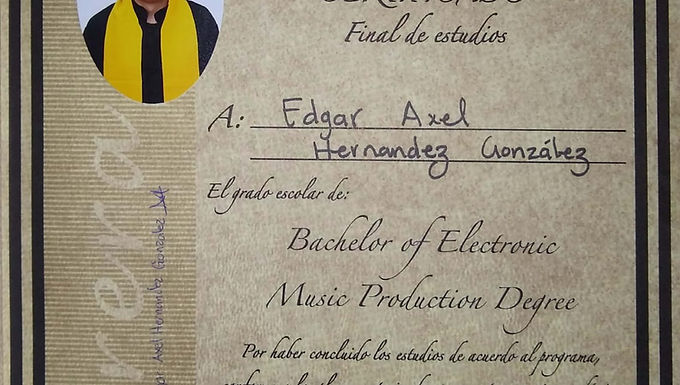 Final de estudios
A: Edgar Axel
Hernandez González
El grado escolar de:
Bachelor of Electronic
Music Production Degree
Por haber concluido los estudios de acuerdo al programa,
Axel Hernandez González